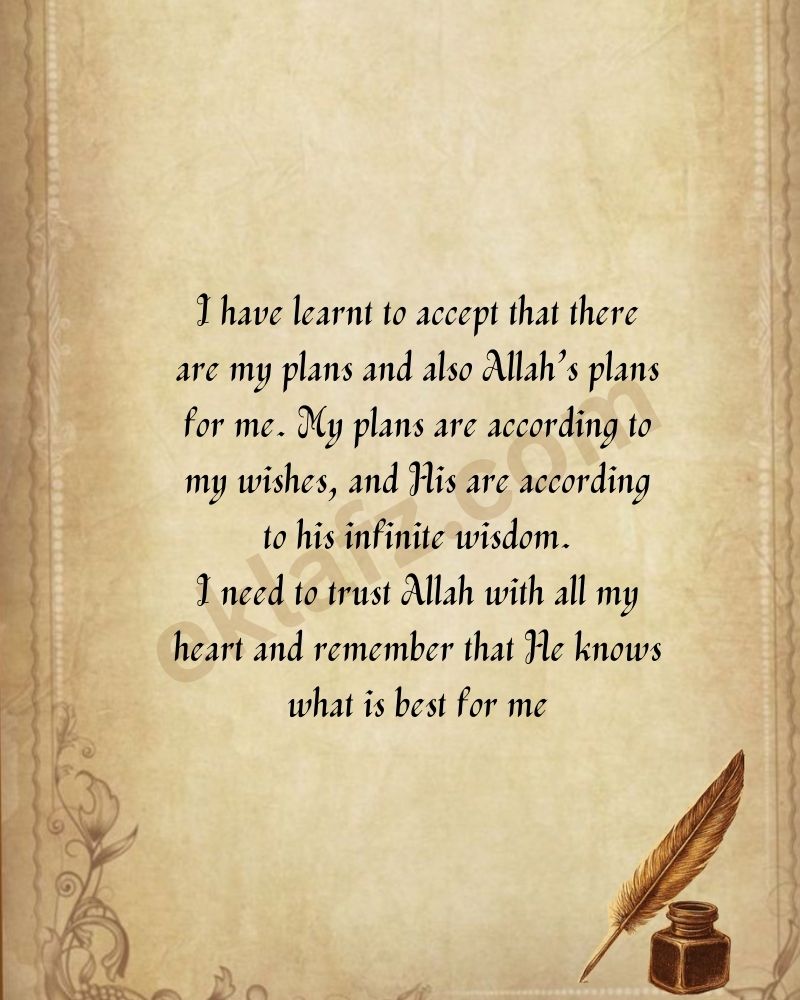 I have learnt to accept that there
are my plans and also Allah's plans
for me. My plans are according to
my wishes, and His are according
to his infinite wisdom.
I need to trust Allah with all my
heart and remember that He knows
what is best for me
eklafz.com